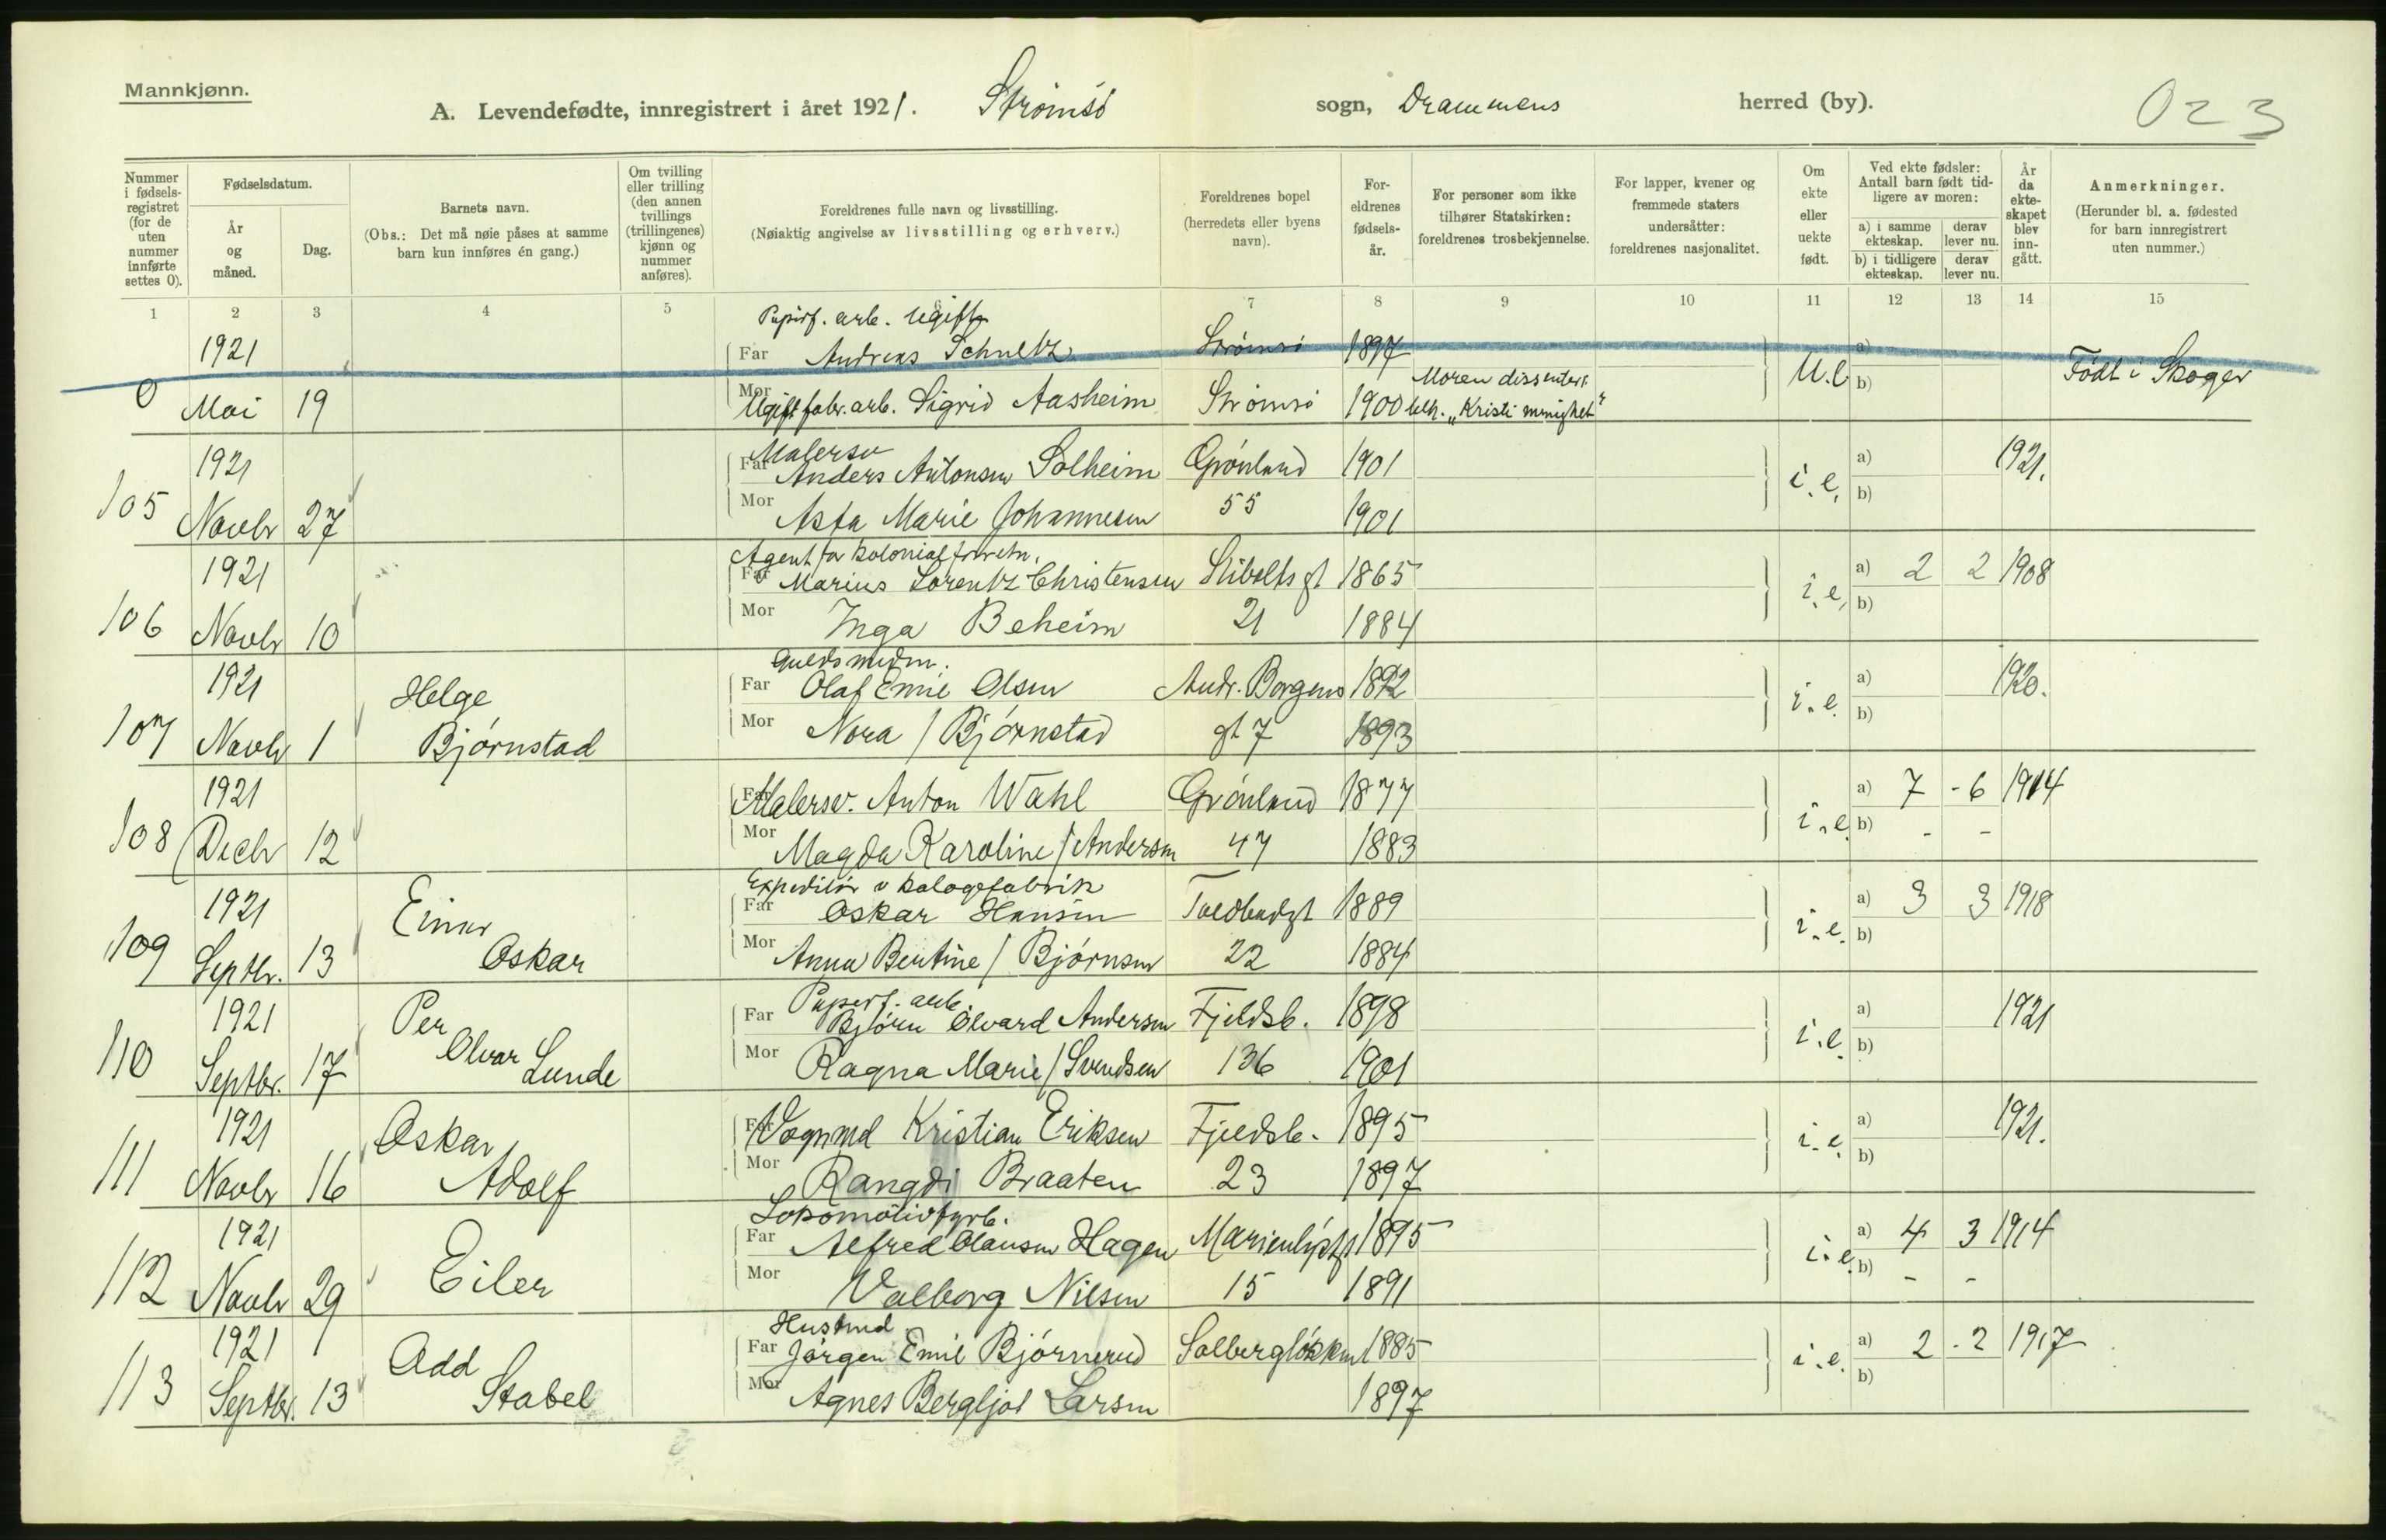 Mannkjønn.
A. Levendefødte, innregistrert i året 1921. Strømsö sogn, Drammens herred (by). 023
Nummer i fødsels-registret (for de uten nummer innførte settes 0).
Fødselsdatum.
År og måned.
Dag.
Barnets navn.
(Obs.: Det må nøie påses at samme barn kun innføres én gang.)
Om tvilling eller trilling (den annen tvillings (trillingenes) kjønn og nummer anføres).
Foreldrenes fulle navn og livsstilling.
(Nøiaktig angivelse av livsstilling og erhverv.)
Foreldrenes bopel (herredets eller byens navn).
For-eldrenes fødsels-år.
For personer som ikke tilhører Statskirken: foreldrenes trosbekjennelse.
For lapper, kvener og fremmede staters undersåtter: foreldrenes nasjonalitet.
Om ekte eller uekte født.
Ved ekte fødsler: Antall barn født tid-ligere av moren:
a) i samme ekteskap. derav lever nu.
b) i tidligere ekteskap. derav lever nu.
År da ekte-skapet blev inn-gått.
Anmerkninger.
(Herunder bl. a. fødested for barn innregistrert uten nummer.)
1 2 3 4 5 6 7 8 9 10 11 12 13 14 15
Papirf. arb. Ugift
1921 Far Andreas Schultz Strömsö 1897 a)
0 Mai 19 Mor Ugift fabr. arb. Sigrid Aasheim Strömsö 1900 Moren dissenter. "Kristi menighet" U.e. b) Født i Skoger
Malersv
1921 Far Anders Antonsen Solheim Grönland 1901 a) 1921.
105 Novbr 27 Mor Asta Marie Johannesen 55 1901 i.e. b)
Agent for kolonialforretn.
1921 Far Marius Lorentz Christensen Stibolts gt 1865 a) 2 2 1908
106 Novbr 10 Mor Inga Beheim 21 1884 i.e. b)
Guldsmedm.
1921 Helge Far Olaf Emil Olsen Andr. Borgens 1892 a) 1920.
107 Novbr 1 Björnstad Mor Nora / Björnstad gt 7 1893 i.e. b)
1921 Far Malersv. Anton Wahl Grönland 1877 a) 7 - 6 1914
108 Decbr 12 Mor Magda Karoline / Andersen 47 1883 i.e. b) - -
Expeditör v
1921 Einar Far Oskar Hansen Toldbodgt 1889 a) 3 3 1918
109 Septbr. 13 Oskar Mor Anna Bertine / Björnsen 22 1884 i.e. b)
Papirf. arb.
1921 Per Far Björn Olvard Andersen Fjeldsb. 1898 a) 1921
110 Septbr. 17 Olvar Lunde Mor Ragna Marie / Svendsen 136 1901 i.e. b)
1921 Oskar Far Vognmd Kristian Eriksen Fjeldsb. 1895 a) 1921.
111 Novbr 16 Adolf Mor Rangdi Braaten 23 1897 i.e. b)
Lokomotivfyrb.
1921 Far Alfred Olausen Hagen Marienlystgt 1895 a) 4 3 1914
112 Novbr 29 Eiler Mor Valborg Nilsen 15 1891 i.e. b) - -
1921 Odd Far Jörgen Emil Björnerud Solberglökken 1885 a) 2 - 2 1917
113 Septbr. 13 Stabel Mor Agnes Bergljot Larsen 1897 i.e. b)